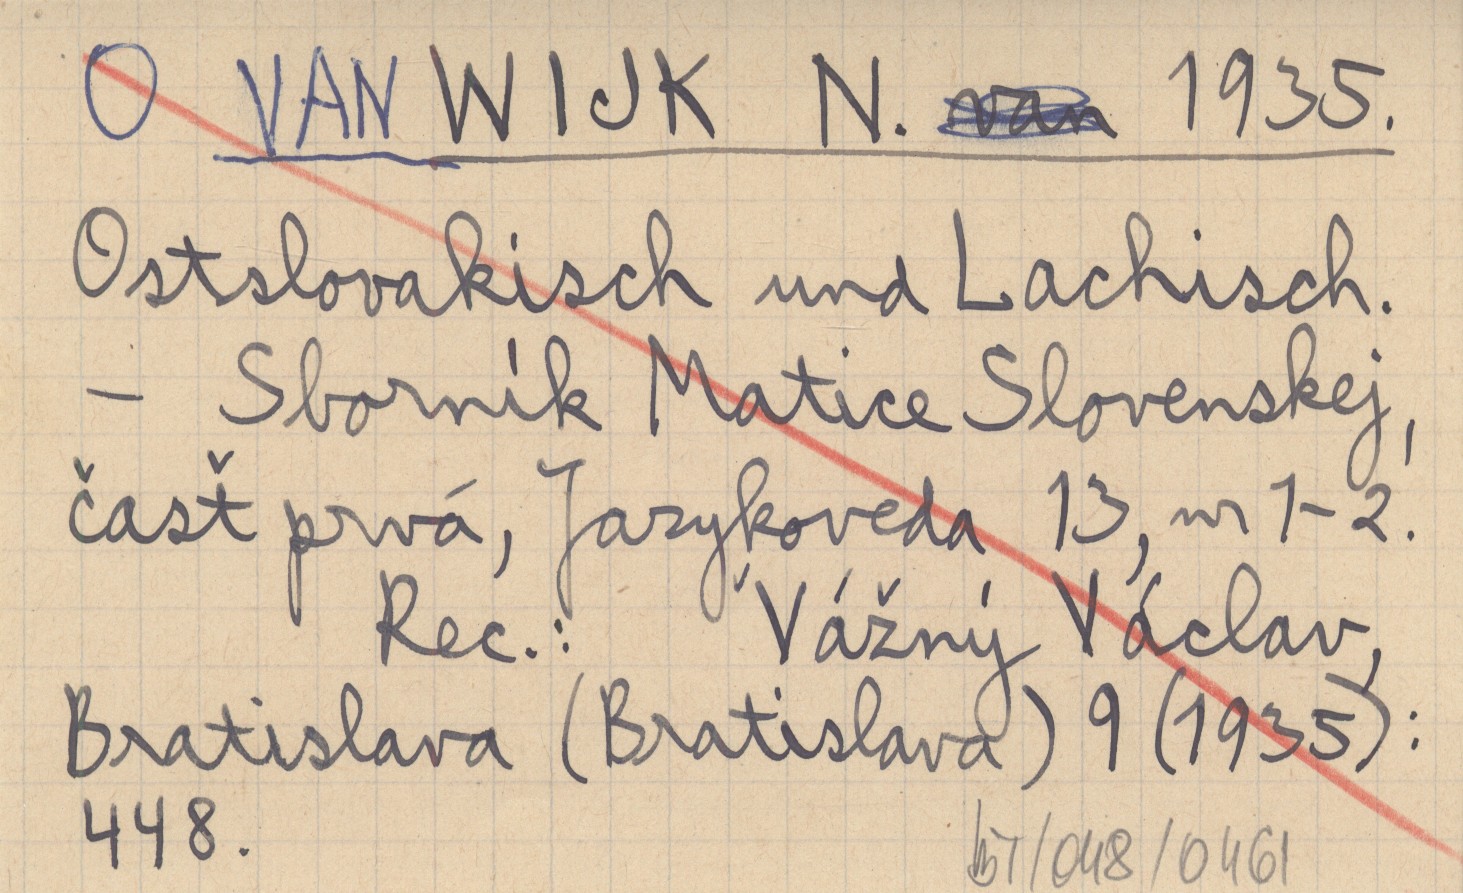 O VAN WIJK N. van 1935.
Ostslovakisch und Lachisch.
- Sborník Matice Slovenskej,
časť prvá, Jazykoveda 13, nr 1-2.
Rec.: Vážný Václav,
Bratislava (Bratislava) 9 (1935):
448.
/048/0461